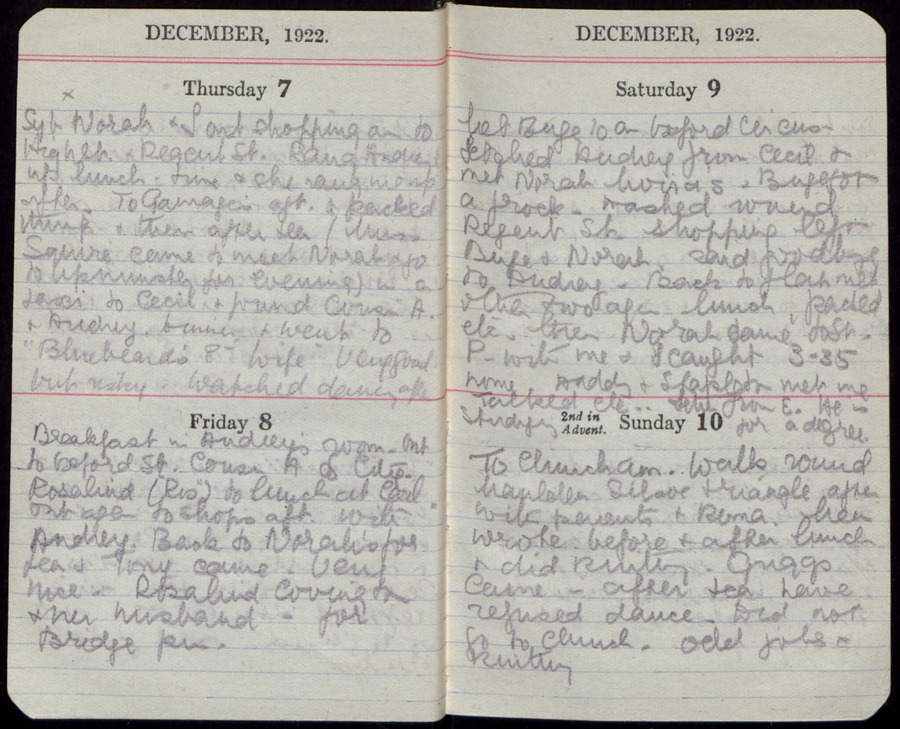 DECEMBER, 1922.
Thursday 7
x
Norah & I out shopping am to
& Regent St. Rang Audrey
up lunch-time & she rang me up
after. To Gamages aft. & packed
things & then after tea (Miss
Squire came to meet Norah & go
to for evening) in a
taxi to Cecil & found Cousin A.
& Audrey. Dinner & went to
"Bluebeard's 8th Wife" Very good
but risky. Watched dancing after
Friday 8
Breakfast in Audrey's room. Out
to Oxford St. Cousin A to City.
Rosalind ("Ros") to lunch at Cecil
Out again to shops aft. with
Audrey. Back to Norah's for
tea & Tony came. Very
nice. Rosalind Covington
& her husband - for
Bridge pm.
DECEMBER, 1922.
Saturday 9
Met 10 am Oxford Circus
fetched Audrey from Cecil &
met Norah got
a frock. Rushed round
Regent St. shopping left
& Norah. Said goodbye
to Audrey. Back to flat met
other two again lunch, packed
etc. then Norah came to St.
P. with me & I caught 3-35
home. Daddy & Stapleton met me
Talked etc.. from E. He is
Studying for a degree.
2nd in
Advent. Sunday 10
To Church am. Walk round
triangle after
with parents & Rema. Then
wrote before & after lunch
& did knitting. Griggs
came - after tea have
refused dance. Did not
go to Church. Odd jobs &
knitting